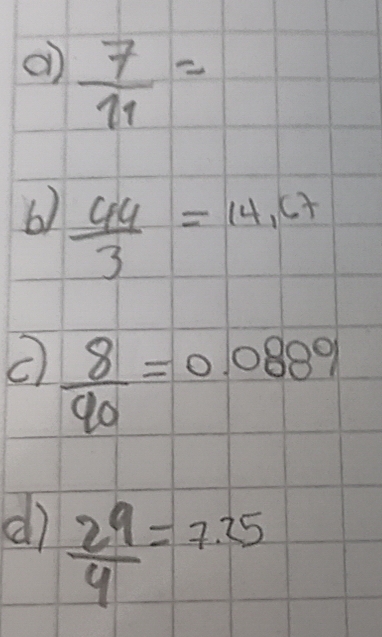 a) 7/11 =
b) 44/3 = 14,67
c) 8/90 = 0.0889
d) 29/4 = 7.25